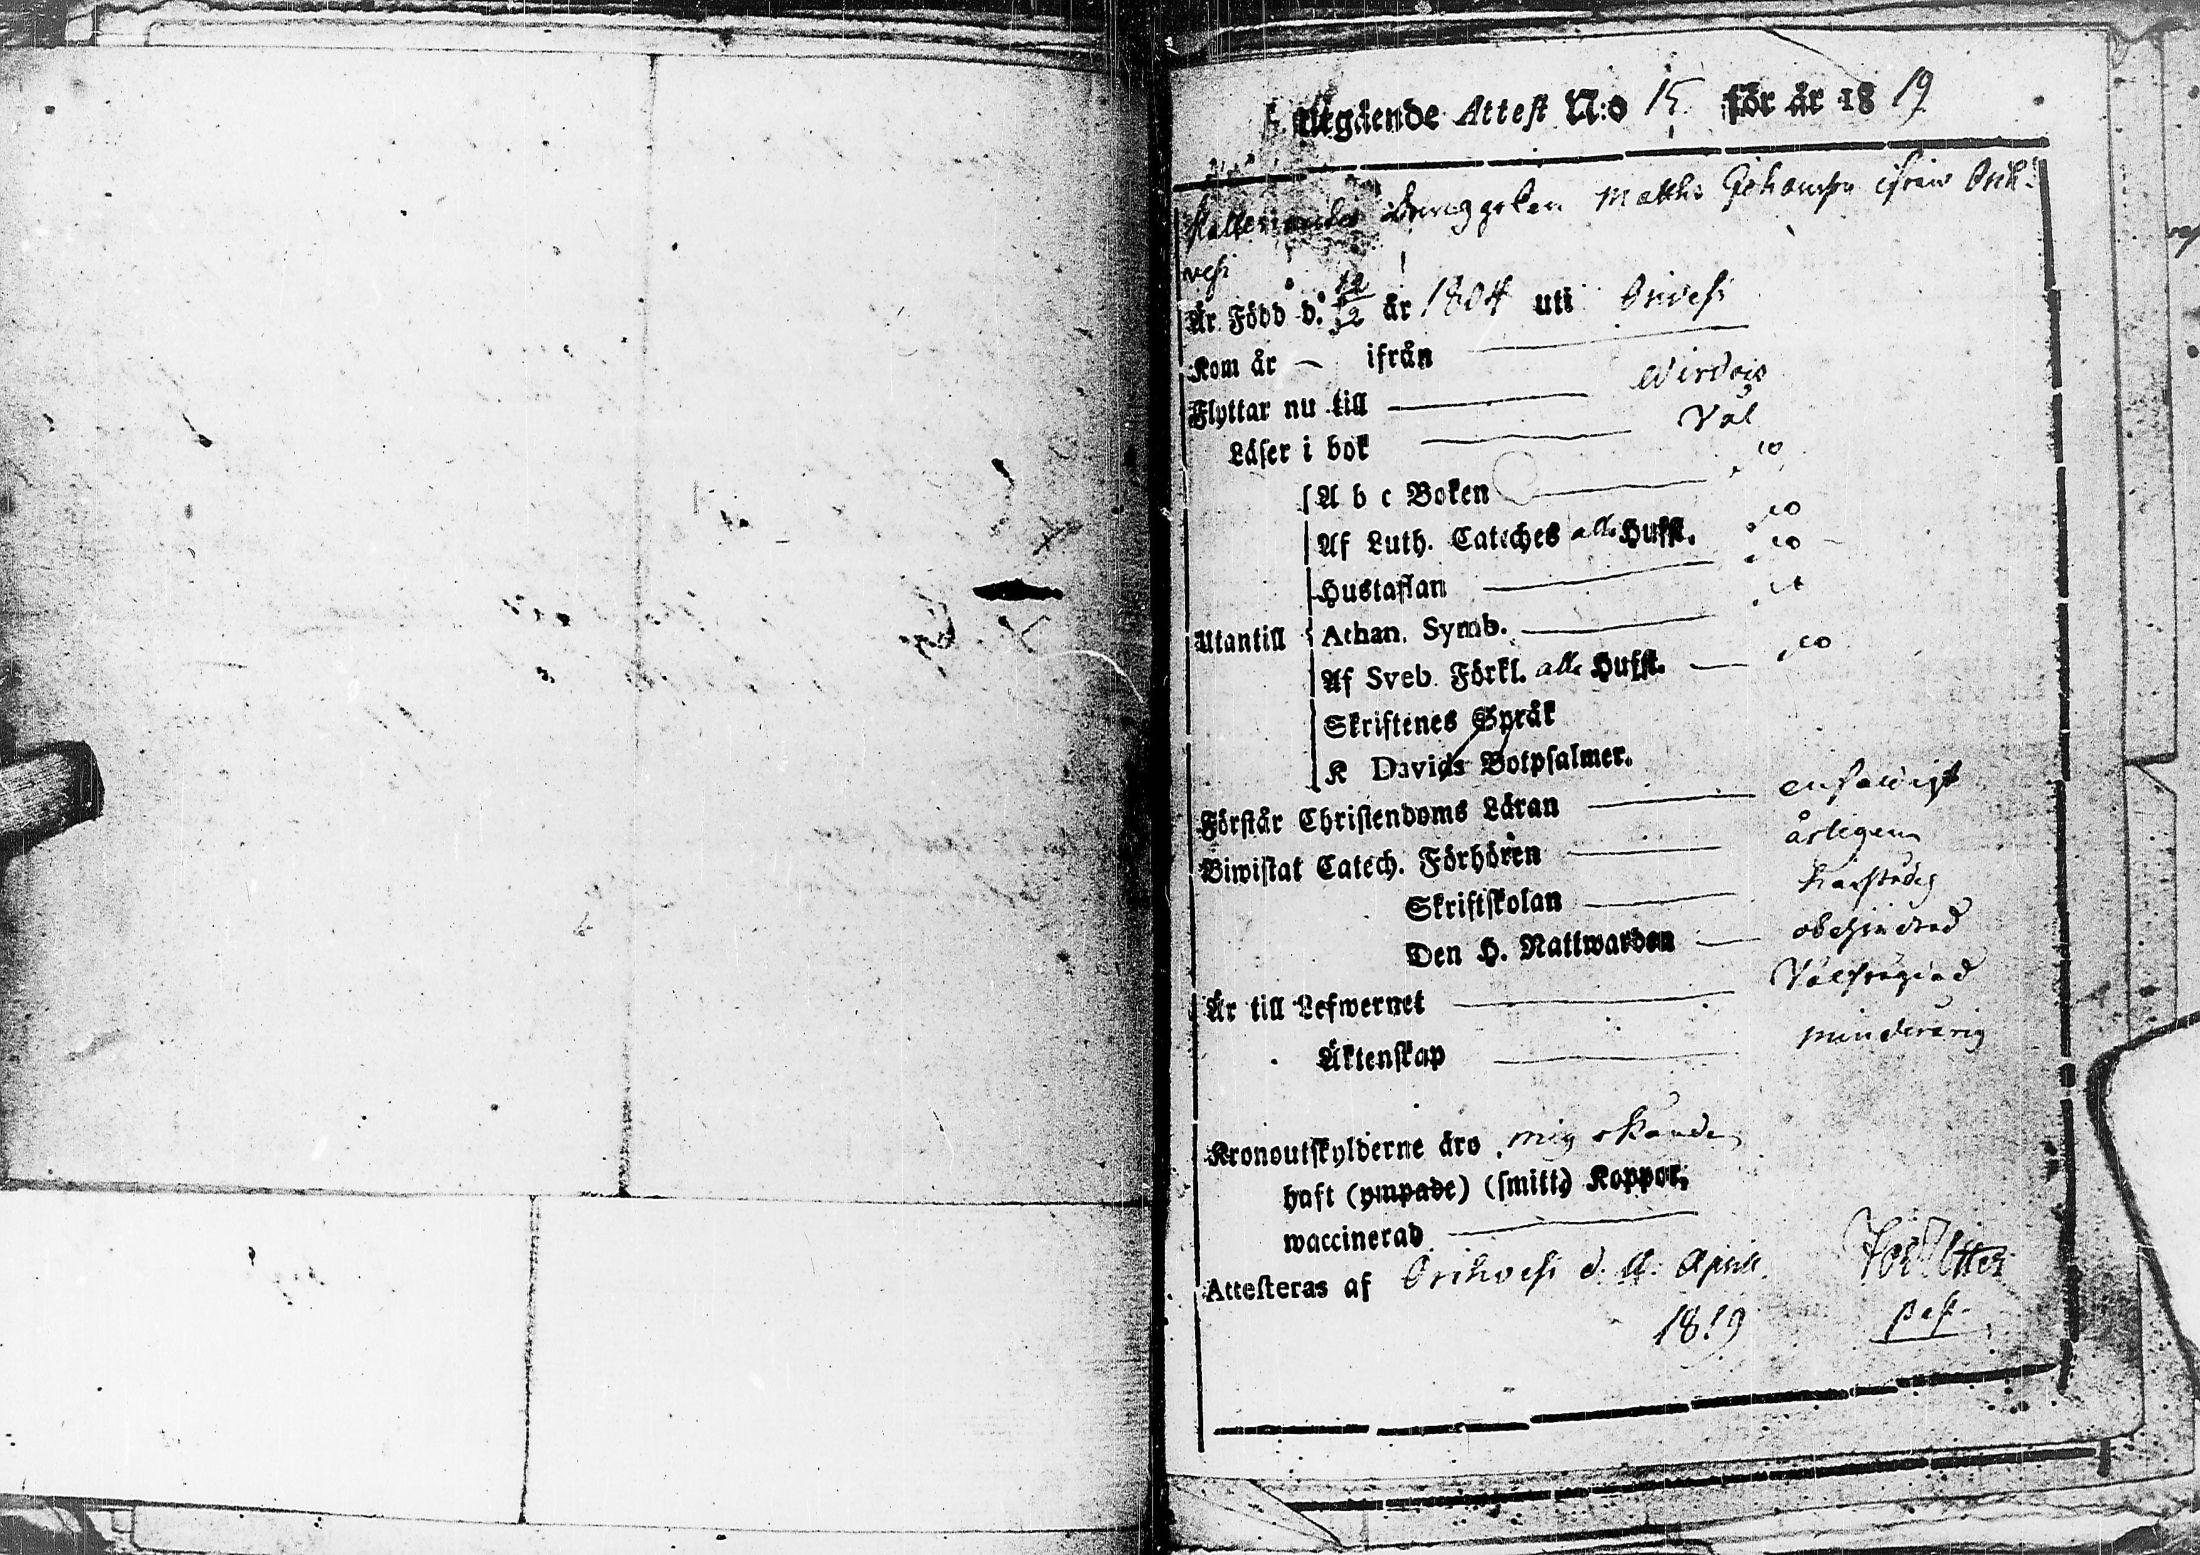 Utgående Attest N:o 15 för år 1819
Dränggoßen Matths Johansson ifrån Orih-
vesi
Är Född d. 12/12 år 1804 uti Orivesi
Kom år — ifrån —
Flyttar nu till — Wirdois
Läser i bok — Väl
A b c Boken — "
Af Luth. Cateches alla Hufst. "
Hustaflan — "
Utantill Athan. Symb. — "
Af Sveb. Förkl. alla Hufst. — "
Skriftenes Språk
K Davids Botpsalmer.
Förstår Christendoms Läran — enfaldigt
Biwistat Catech. Förhören — årligen
Skriftskolan —
Den H. Nattwarden — obehindrad
Är till Lefwernet — Välfrägdad
Äktenskap — minderårig
Kronoutskylderne äro
haft (ympade) (smitt) Koppor,
waccinerad —
Attesteras af Orihvesi d. April
1819 past.